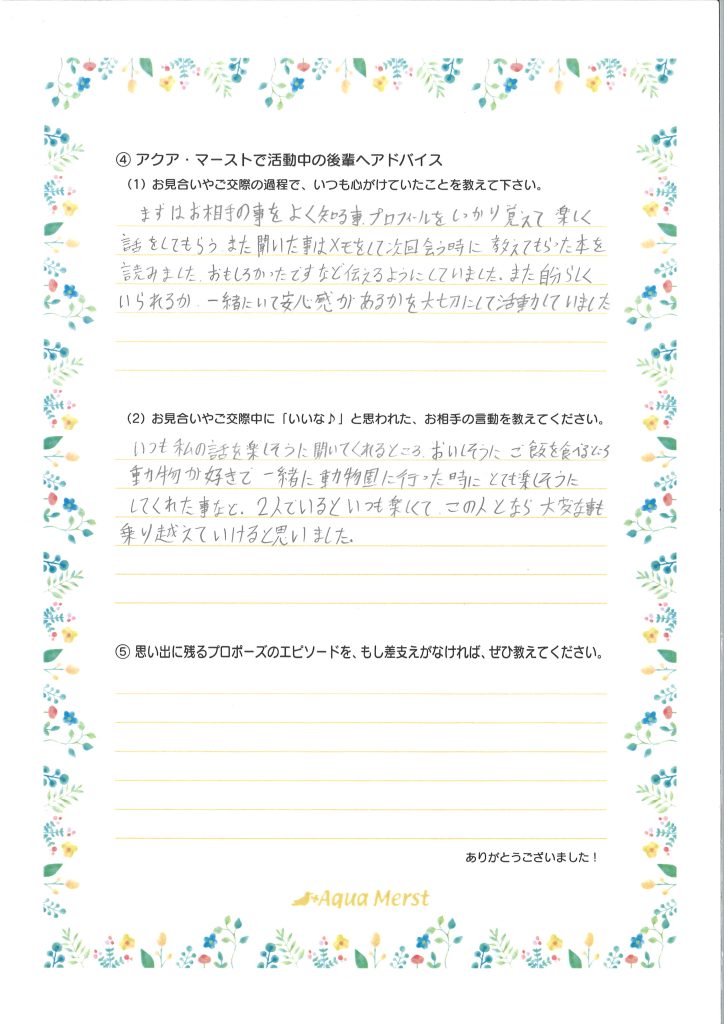 ④ アクア・マーストで活動中の後輩へアドバイス
（1）お見合いやご交際の過程で、いつも心がけていたことを教えて下さい。
まずはお相手の事をよく知る事、プロフィールをしっかり覚えて 楽しく
話をしてもらう また聞いた事はメモをして次回会う時に 教えてもらった本を
読みました。おもしろかったですなど伝えるようにしていました。また自分らしく
いられるか、一緒にいて安心感があるかを大切にして活動していました
（2）お見合いやご交際中に「いいな♪」と思われた、お相手の言動を教えてください。
いつも私の話を楽しそうに聞いてくれるところ、おいしそうに ご飯を食べるところ
動物が好きで 一緒に動物園に行った時に とても楽しそうに
してくれた事など、2人でいるといつも楽しくて、この人となら 大変な事も
乗り越えていけると思いました。
⑤ 思い出に残るプロポーズのエピソードを、もし差支えがなければ、ぜひ教えてください。
ありがとうございました！
Aqua Merst